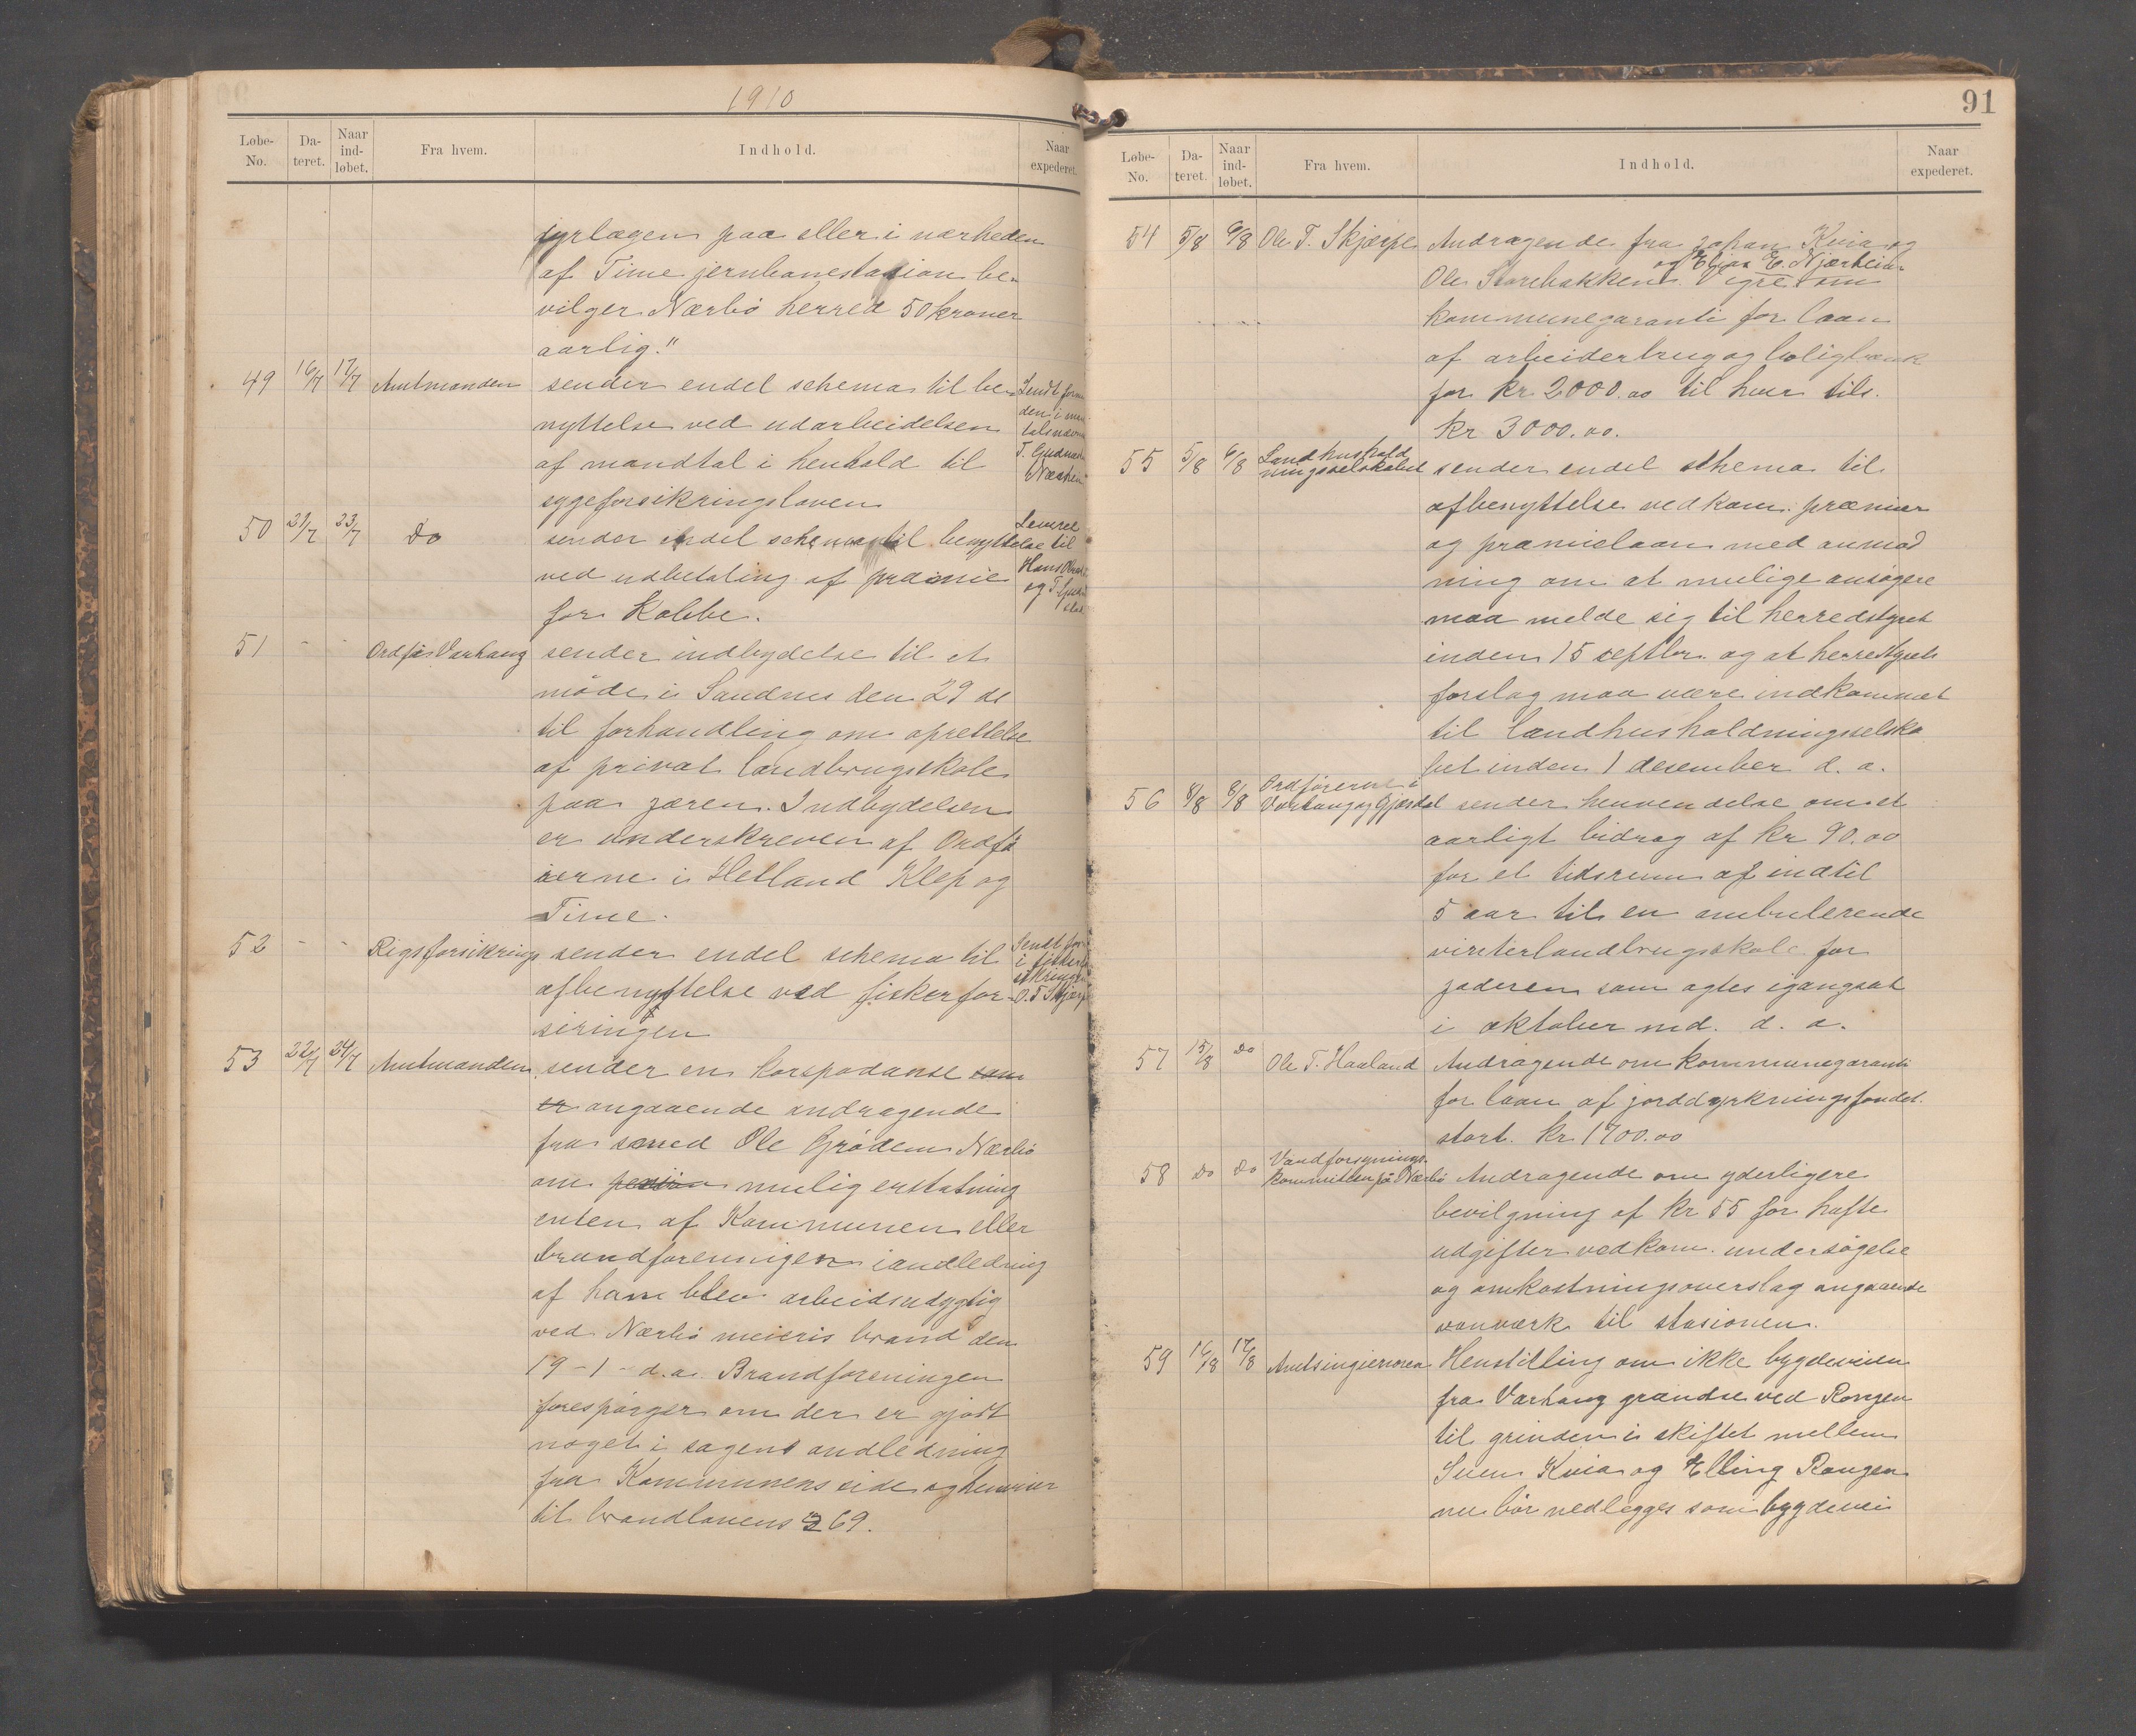 1910
Løbe-No. Da-teret. Naar ind-løbet. Fra hvem. Indhold. Naar expederet.
dyrlægen paa eller i nærheden
af Time jernbanestasion be-
vilger Nærbö herred 50 kroner
aarlig."
49 16/7 17/7 Amtmanden sender endel schema til be-
nyttelse ved udarbeidelsen
af mandtal i henhold til
sygeforsikringsloven
50 21/7 23/7 Do sender endel schema til benyttelse
ved udbetaling af præmie
for Kobbe.
51 - - Ordför Varhaug sender indbydelse til et
möde i Sandnes den 29 ds
til forhandling om oprettelse
af privat landbrugsskole
paa jæren. Indbydelsen
er underskreven af Ordfö
rerne i Hetland Klep og
Time.
52 - - Rigsforsikrings sender endel schema til
afbenyttelse ved fiskerfor-
siringen
53 22/7 24/7 Amtmanden sender en korspodanse som
er angaaende andragende
fra smed Ole Grödem Nærbö
om pension mulig erstatning
enten af Kommunen eller
brandforeningen i andledning
af ham blev arbeidsudygtig
ved Nærbö meieris brand den
19-1- d.a. Brandforeningen
forespörger om der er gjort
noget i sagens andledning
fra Kommunens side og henviser
til brandlovens § 69.
Sendt
T. Gudmund
til
Hans
og T.
Sendt for
i fisker
sikringen
O. T. Skjærp
91
Løbe-No. Da-teret. Naar ind-løbet. Fra hvem. Indhold. Naar expederet.
54 5/8 6/8 Ole T. Skjærpe Andragende fra Johan Kvia og
og Elias E. Njærheim
Ole Storebakken Vigre om
kommunegaranti for laan
af arbeiderbrug og boligbank
for kr 2000.00 til hver tils.
kr 3000.00.
55 5/8 6/8 Landhushold
ningsselskabet sender endel schema til
afbenyttelse vedkom. præmier
og præmielaan med anmod
ning om at mulige ansögere
maa melde sig til herredstyret
inden 15 septbr. og at herrestyrets
forslag maa være indkommet
til landhusholdningsselska
bet inden 1 desember d. a.
56 8/8 8/8 Ordförerne i
Varhaug og Gjesdal sender henvendelse om et
aarligt bidrag af kr 90.00
for et tidsrum af indtil
5 aar til en ambulerende
vinterlandbrugsskole for
jæderen som agtes igangsat
i oktober md. d. a.
57 15/8 Do Ole T. Haaland Andragende om kommunegaranti
for laan af jorddyrkningsfondet
stort kr. 1700.00
58 Do Do Vandforsynings-
kommitteen på Nærbö Andragende om yderligere
bevilgning af kr 55 for hafte
udgifter vedkom. undersögelse
og omkostningsoverslag angaaende
vanværk til stasionen.
59 16/8 17/8 Amtsingieniören Henstilling om ikke bygdeveien
fra Varhaug grændse ved Rongen
til grinden i skiftet mellem
Sven Kvia og Elling Rongen
nu bör nedlegges som bygdevei